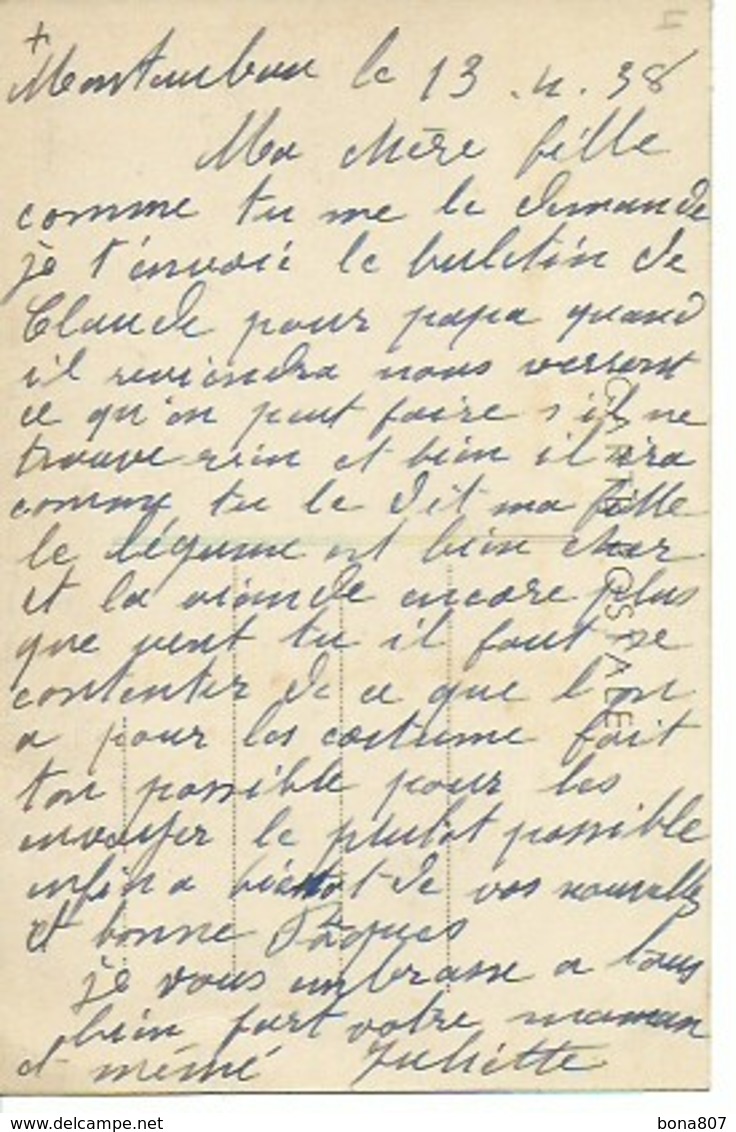 +
I
Montauban le 13 . 4 . 38
Ma chère fille
comme tu me le demande
je t'envoie le buletin de
Claude pour papa quand
il reviendra nous verront
ce qu'on peut faire s'il ne
trouve rien et bien il sera
comme tu le dit ma fille
le légume est bien cher
et la viande encore plus
que veut tu il faut se
contenter de ce que l'on
a pour les costume fait
ton possible pour les
envoyer le plutôt possible
enfin a bientôt de vos nouvelles
et bonne Pâques
je vous embrasse a tous
bien fort votre maman
et mémé Juliette
CARTE POSTALE
delcampe.net
bona807